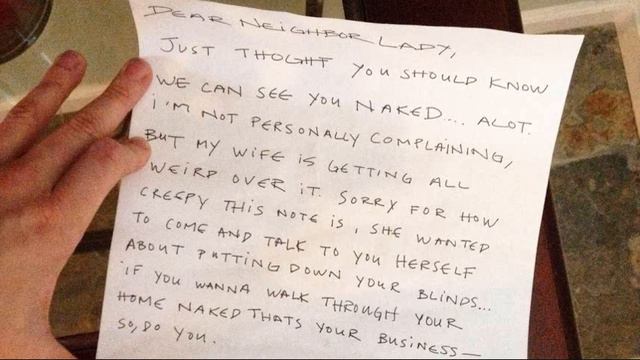 DEAR NEIGHBOR LADY,
JUST THOGHT YOU SHOULD KNOW
WE CAN SEE YOU NAKED.... ALOT.
I'M NOT PERSONALLY COMPLAINING,
BUT MY WIFE IS GETTING ALL
WEIRD OVER IT. SORRY FOR HOW
CREEPY THIS NOTE IS, SHE WANTED
TO COME AND TALK TO YOU HERSELF
ABOUT PUTTING DOWN YOUR BLINDS...
IF YOU WANNA WALK THROUGH YOUR
HOME NAKED THATS YOUR BUSINESS—
SO, DO YOU.